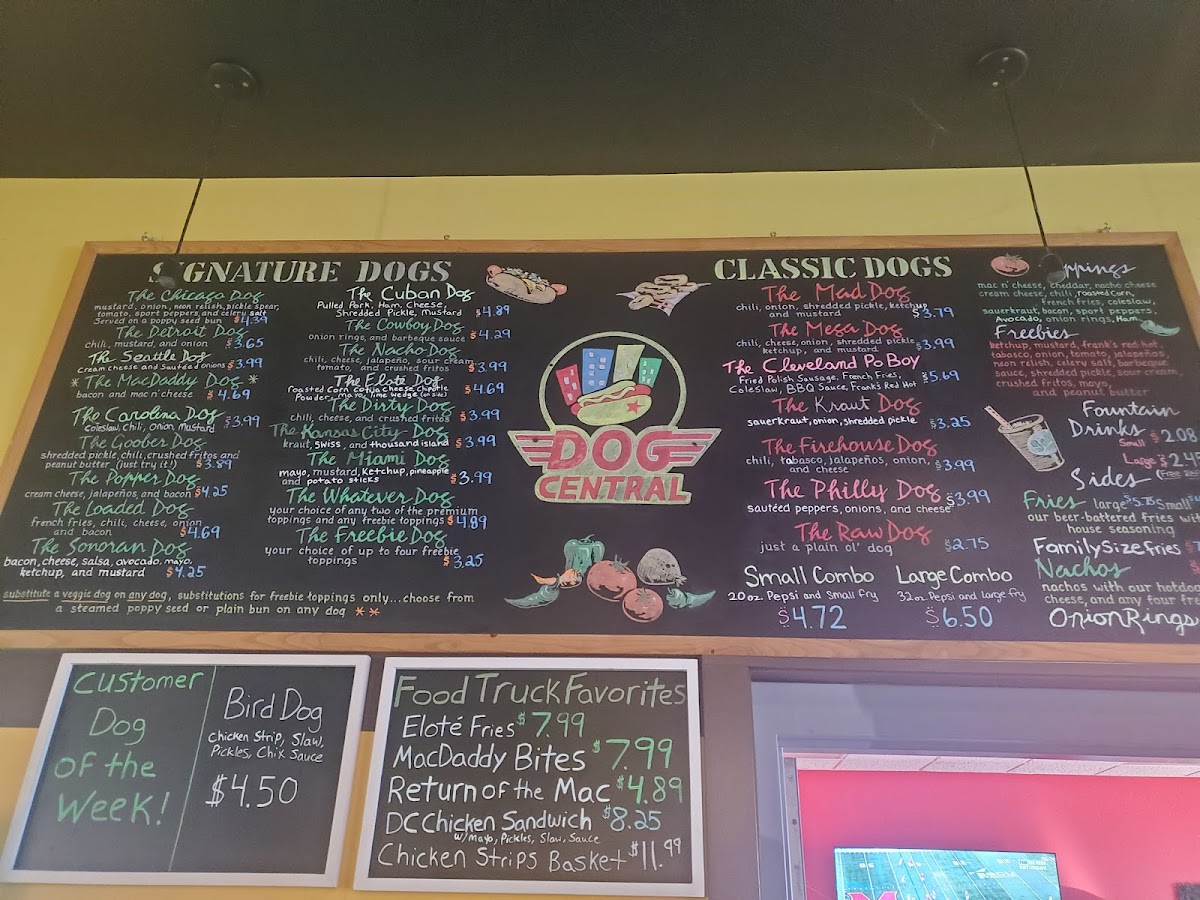 SIGNATURE DOGS
The Chicago Dog
mustard, onion, neon relish, pickle spear,
tomato, sport peppers, and celery salt
Served on a poppy seed bun $4.39
The Detroit Dog
chili, mustard, and onion $3.65
The Seattle Dog
cream cheese and Sauteéd onions $3.99
*The MacDaddy Dog*
bacon and mac n' cheese $4.69
The Carolina Dog
Coleslaw, Chili, Onion, Mustard $3.99
The Goober Dog
shredded pickle, chili, crushed fritos and
peanut butter (just try it!) $3.89
The Popper Dog
cream cheese, jalapeños, and bacon $4.25
The Loaded Dog
french fries, chili, cheese, onion
and bacon $4.69
The Sonoran Dog
bacon, cheese, salsa, avocado, mayo,
ketchup, and mustard $4.25
The Cuban Dog
Pulled Pork, Ham, Cheese,
Shredded Pickle, Mustard $4.89
The Cowboy Dog
onion rings, and barbeque sauce $4.29
The Nacho Dog
chili, cheese, jalapeño, sour cream
tomato, and crushed fritos $3.99
The Eloté Dog
roasted Corn, Cotija Cheese, Chipotle
Powder, mayo, lime wedge (on side) $4.69
The Dirty Dog
chili, cheese, and crushed fritos $3.99
The Kansas City Dog
kraut, Swiss, and thousand island $3.99
The Miami Dog
mayo, mustard, ketchup, pineapple
and potato sticks $3.99
The Whatever Dog
your choice of any two of the premium
toppings and any freebie toppings $4.89
The Freebie Dog
your choice of up to four freebie
toppings $3.25
substitute a veggie dog on any dog, substitutions for freebie toppings only...choose from
a steamed poppy seed or plain bun on any dog **
DOG
CENTRAL
CLASSIC DOGS
The Mad Dog
chili, onion, shredded pickle, ketchup
and mustard $3.79
The Mega Dog
chili, cheese, onion, shredded pickle
ketchup, and mustard $3.99
The Cleveland Po Boy
Fried Polish Sausage, French Fries,
Coleslaw, B.B.Q Sauce, Frank's Red Hot $5.69
The Kraut Dog
sauerkraut, onion, shredded pickle $3.25
The Firehouse Dog
chili, tabasco, jalapeños, onion,
and cheese $3.99
The Philly Dog $3.99
sautéed peppers, onions, and cheese
The Raw Dog
just a plain ol' dog $2.75
Small Combo
20 oz. Pepsi and Small fry
$4.72
Large Combo
32 oz. Pepsi and large fry
$6.50
ppings
mac n' cheese, cheddar, nacho cheese
cream cheese, chili, roasted Corn,
french fries, coleslaw,
sauerkraut, bacon, sport peppers,
Avocado, onion rings, Ham
Freebies
ketchup, mustard, frank's red hot,
tabasco, onion, tomato, jalapeños,
neon relish, celery salt, barbeque
sauce, shredded pickle, sour cream,
crushed fritos, mayo,
and peanut butter
Fountain
Drinks
Small $2.08
Large $2.45
Sides
Fries large $5.75 Small
our beer-battered fries with
house seasoning
Family Size Fries
Nachos
nachos with our hotdog
cheese, and any four fre
Onion Rings
Customer
Dog
of the
Week!
Bird Dog
Chicken Strip, Slaw,
Pickles, Chik Sauce
$4.50
Food Truck Favorites
Eloté Fries $7.99
MacDaddy Bites $7.99
Return of the Mac $4.89
DC Chicken Sandwich $8.25
w/Mayo, Pickles, Slaw, Sauce
Chicken Strips Basket $11.99